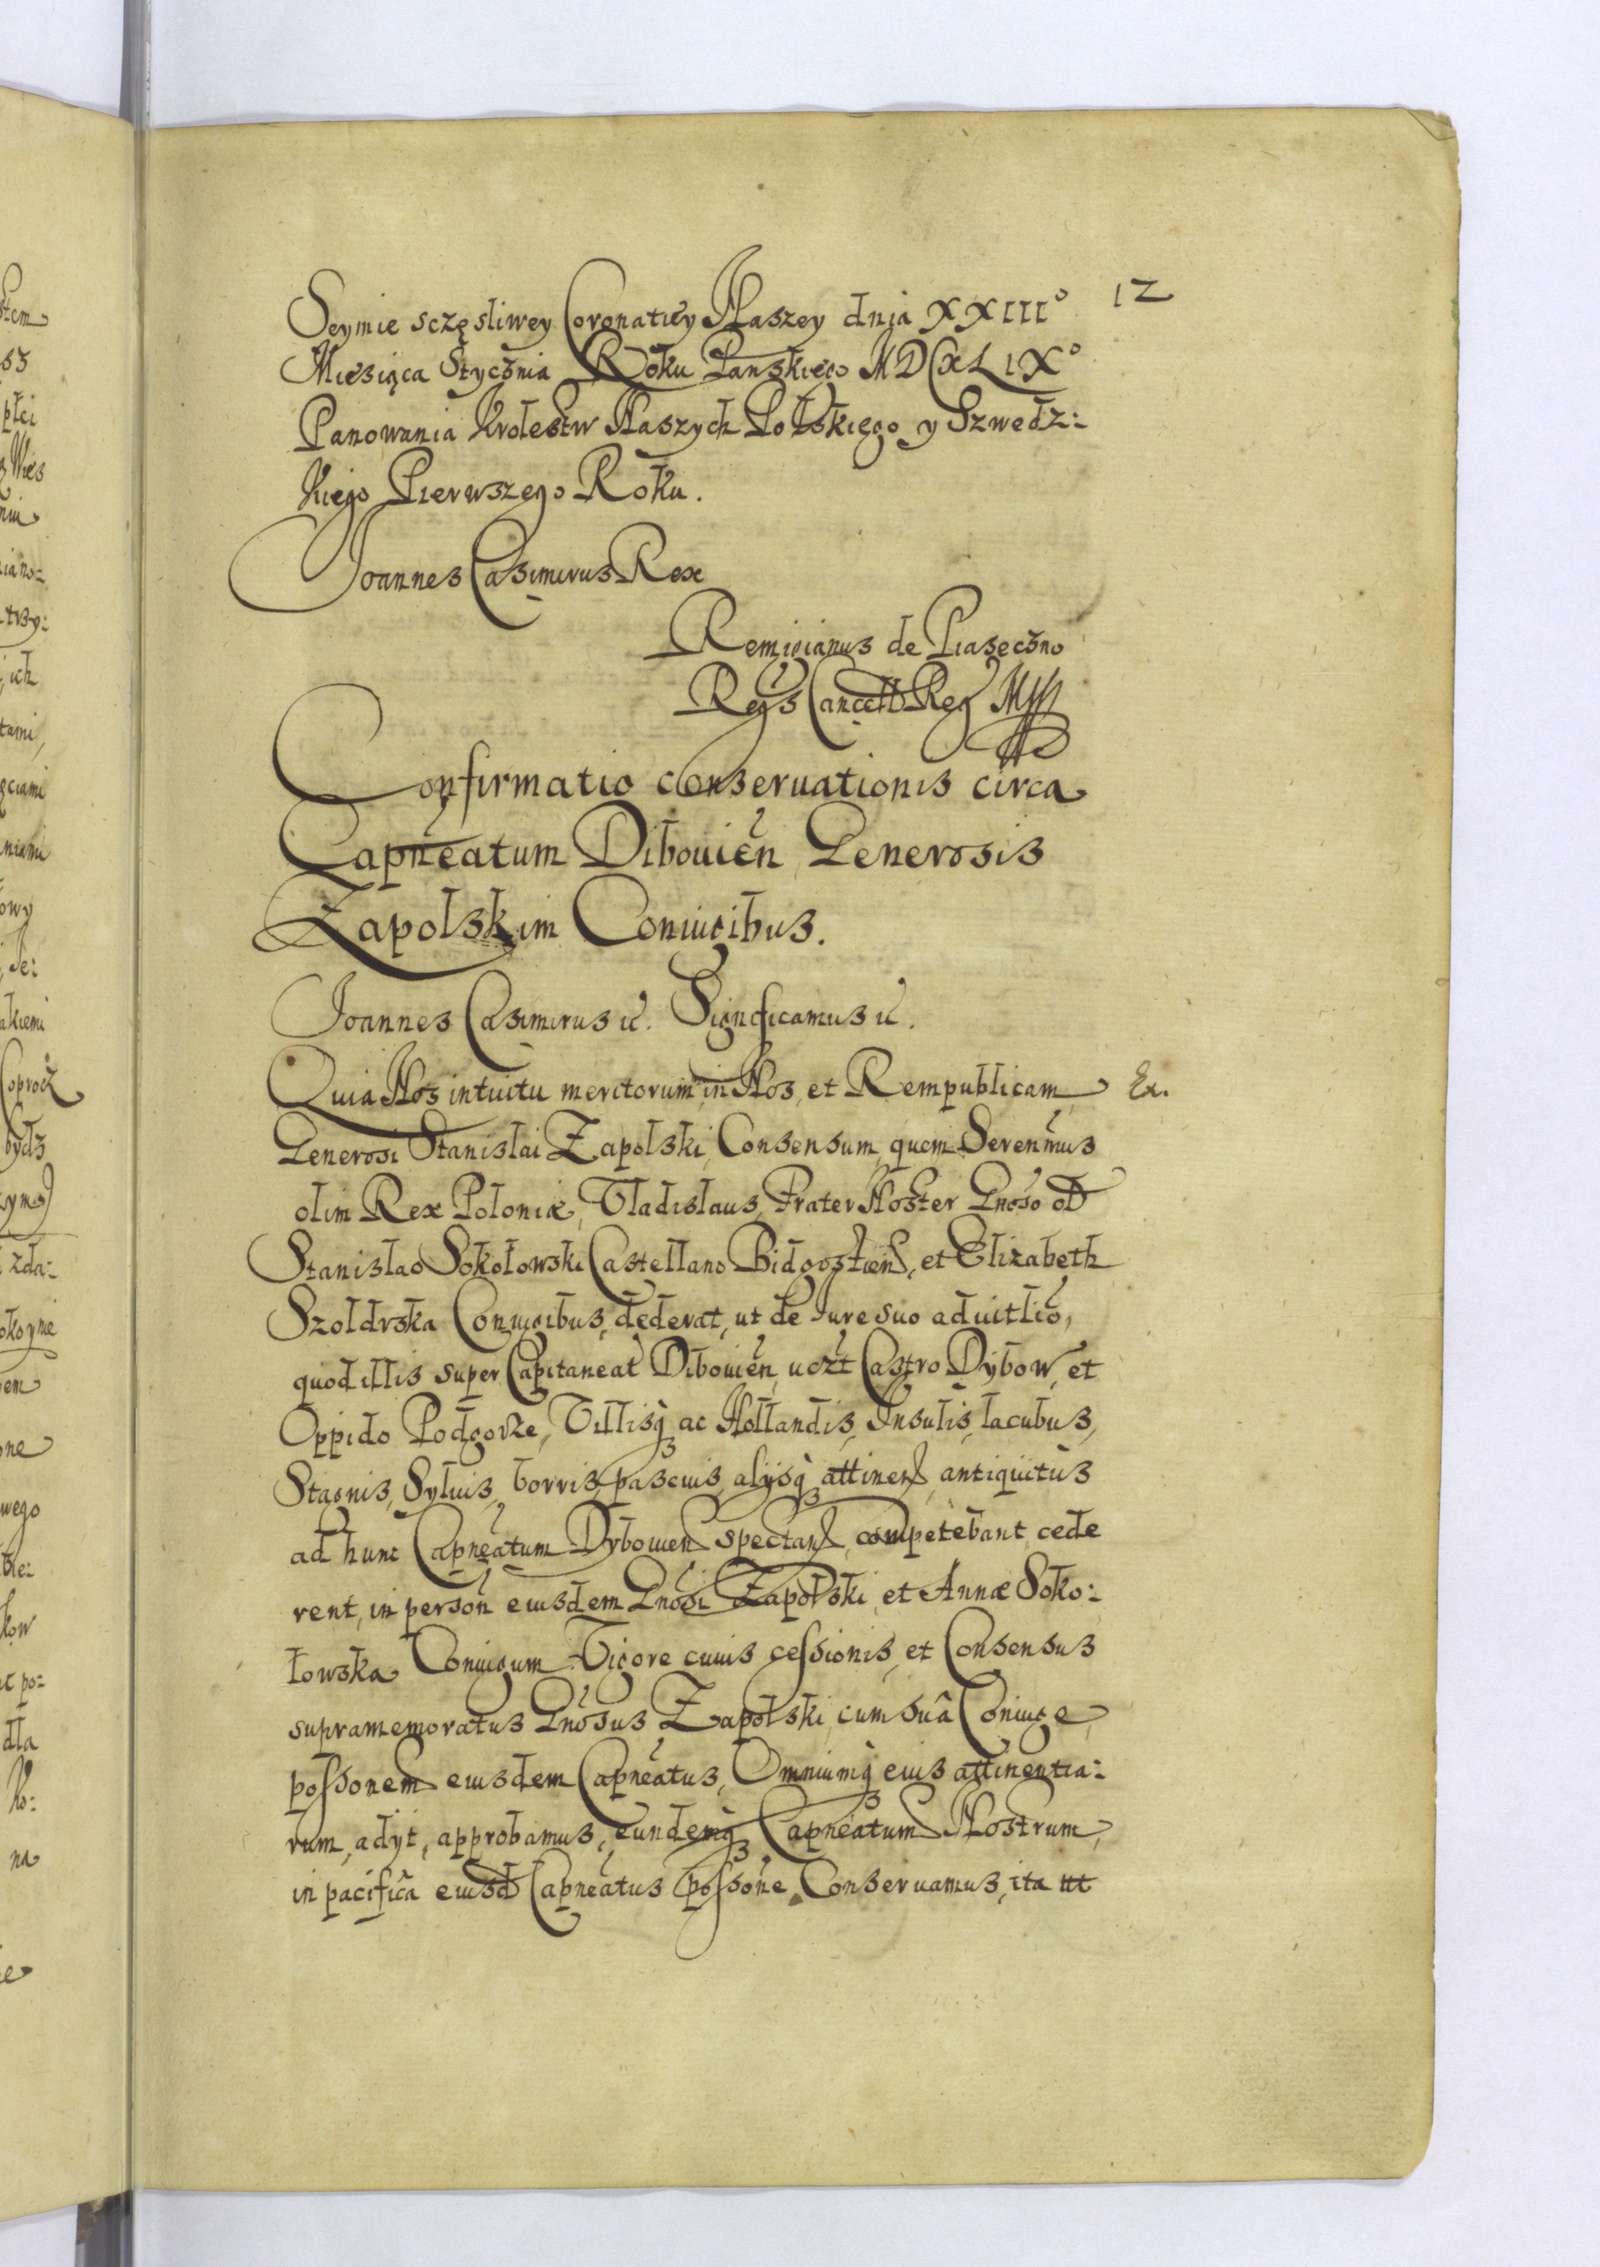 12
Seymie sczęsliwey Coronatiey Naszey dnia XXIII°
Miesiąca Stycznia Roku Panskiego MDCXLIX°
Panowania Krolestw Naszych Polskiego y Szwedz:
kiego Pierwszego Roku.
Joannes Casimirus Rex
Remigianus de Piaseczno
Regs Cancell Reg Mpp
Confirmatio conseruationis circa
Capneatum Dibouien Generosis
Zapolskim Coniugibus.
Joannes Casimirus ec. Significamus ec.
Quia Nos intuitu meritorum in Nos, et Rempublicam Ex.
Generosi Stanislai Zapolski, Consensum, quem Serenmus
olim Rex Poloniæ, Vladislaus, Frater Noster Gnoso
Stanislao Sokołowski Castellano Bidgostien, et Elizabeth
Szoldrska Coniugibus, dederat, ut de Iure suo aduitlio,
quod illis super Capitaneat Dibouien, uczt Castro Dybow, et
Oppido Podgorze, Villisq ac Hollandis, Insulis, lacubus,
Stagnis, Syluis, borris, pascuis, alysq attinen, antiquitus
ad hunc Capneatum Dybouien spectan, competebant, cede
rent, in person eiusdem Gnosi Zapolski, et Annæ Soko:
łowska Coniugum. Vigore cuius cessionis, et Consensus
supramemoratus Gnosus Zapolski, cum suâ Coniuge,
possonem eiusdem Capneatus, Omniumq eius attinentia:
rum, adyt, approbamus, eundemq Capneatum Nostrum,
in pacifica eiusd Capneatus possone Conseruamus, ita ut